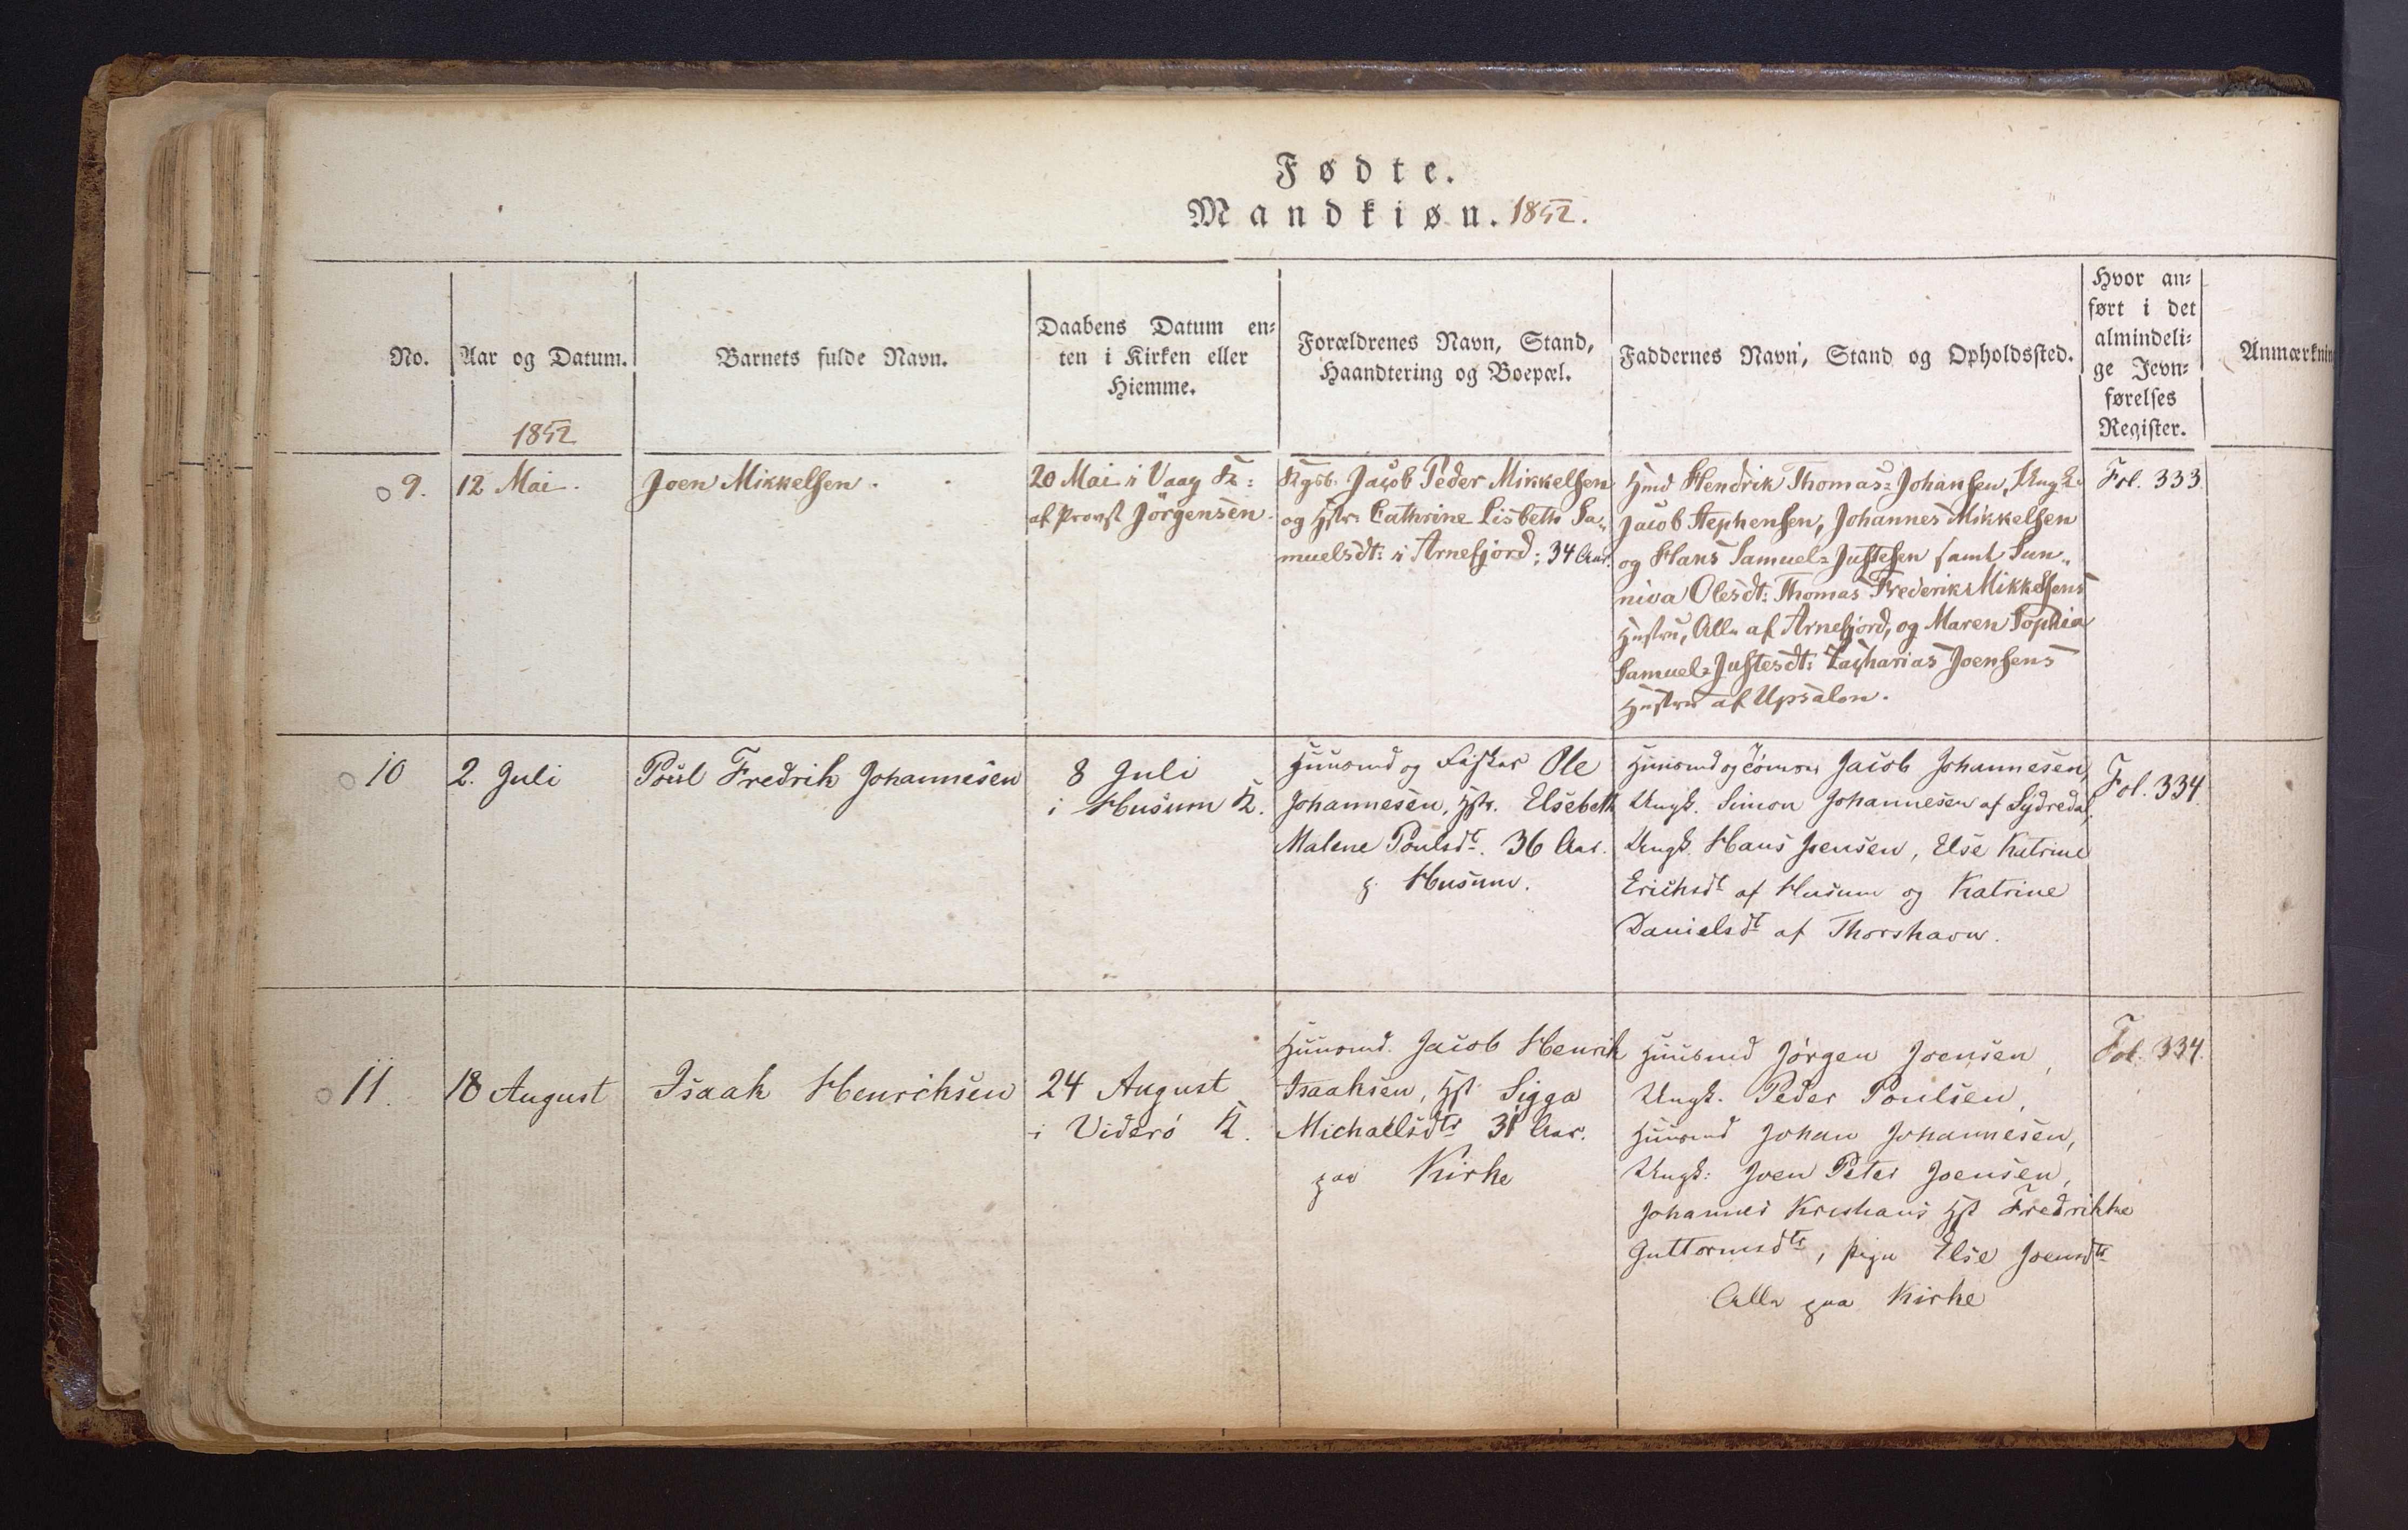 Fødte.
Mandkiøn. 1852.
No.
Aar og Datum.
1852
Barnets fulde Navn.
Daabens Datum en-
ten i Kirken eller
Hiemme.
Forældrenes Navn, Stand,
Haandtering og Boepæl.
Faddernes Navn, Stand og Opholdssted.
Hvor an-
ført i det
almindeli-
ge Jevn-
førelses
Register.
Anmærknin
9.
12 Mai.
Joen Mikkelsen.
20 Mai i Vaag K:
af Provst Jörgensen.
Kgsb. Jacob Peder Mikkelsen
og Hstr: Cathrine Lisbeth Sa-
muelsdt: i Arnefjord; 34 Aar.
Hmd Hendrik Thomas-Johansen, Ungk:
Jacob Stephensen, Johannes Mikkelsen
og Hans Samuel-Justesen samt Sun-
niva Olesdt: Thomas Frederik Mikkelsens
Hustru, Alle af Arnefjord, og Maren Sophia
Samuel-Justesdt: Zacharias Joensens
Hustru af Upsalen.
Fol. 333
10
2. Juli
Poul Fredrik Johannesen
8 Juli
i Husum K.
Huusmd og Fisker Ole
Johannesen, Hstr. Elsebeth
Malene Poulsdt. 36 Aar.
p. Husum.
Huusmd og Tømrer Jacob Johannesen,
Ungk. Simon Johannesen af Sydredal,
Ungk. Hans Joensen, Else Katrine
Erichsdt af Husum og Katrine
Danielsdt af Thorshavn.
Fol. 334.
11.
18 August
Isaak Henrichsen
24 August
i Viderö K.
Huusmd. Jacob Henrik
Isaaksen, Hst Sigga
Michaelsdtr 31 Aar.
paa Kirke
Huusmd Jörgen Joensen,
Ungk. Peder Poulsen,
Huusmd Johan Johannesen,
Ungk: Joen Peter Joensen,
Johannes Krishans Hst Fredrikke
Guttormsdtr, pige Else Joensdtr
Alle paa Kirke
Fol. 334.